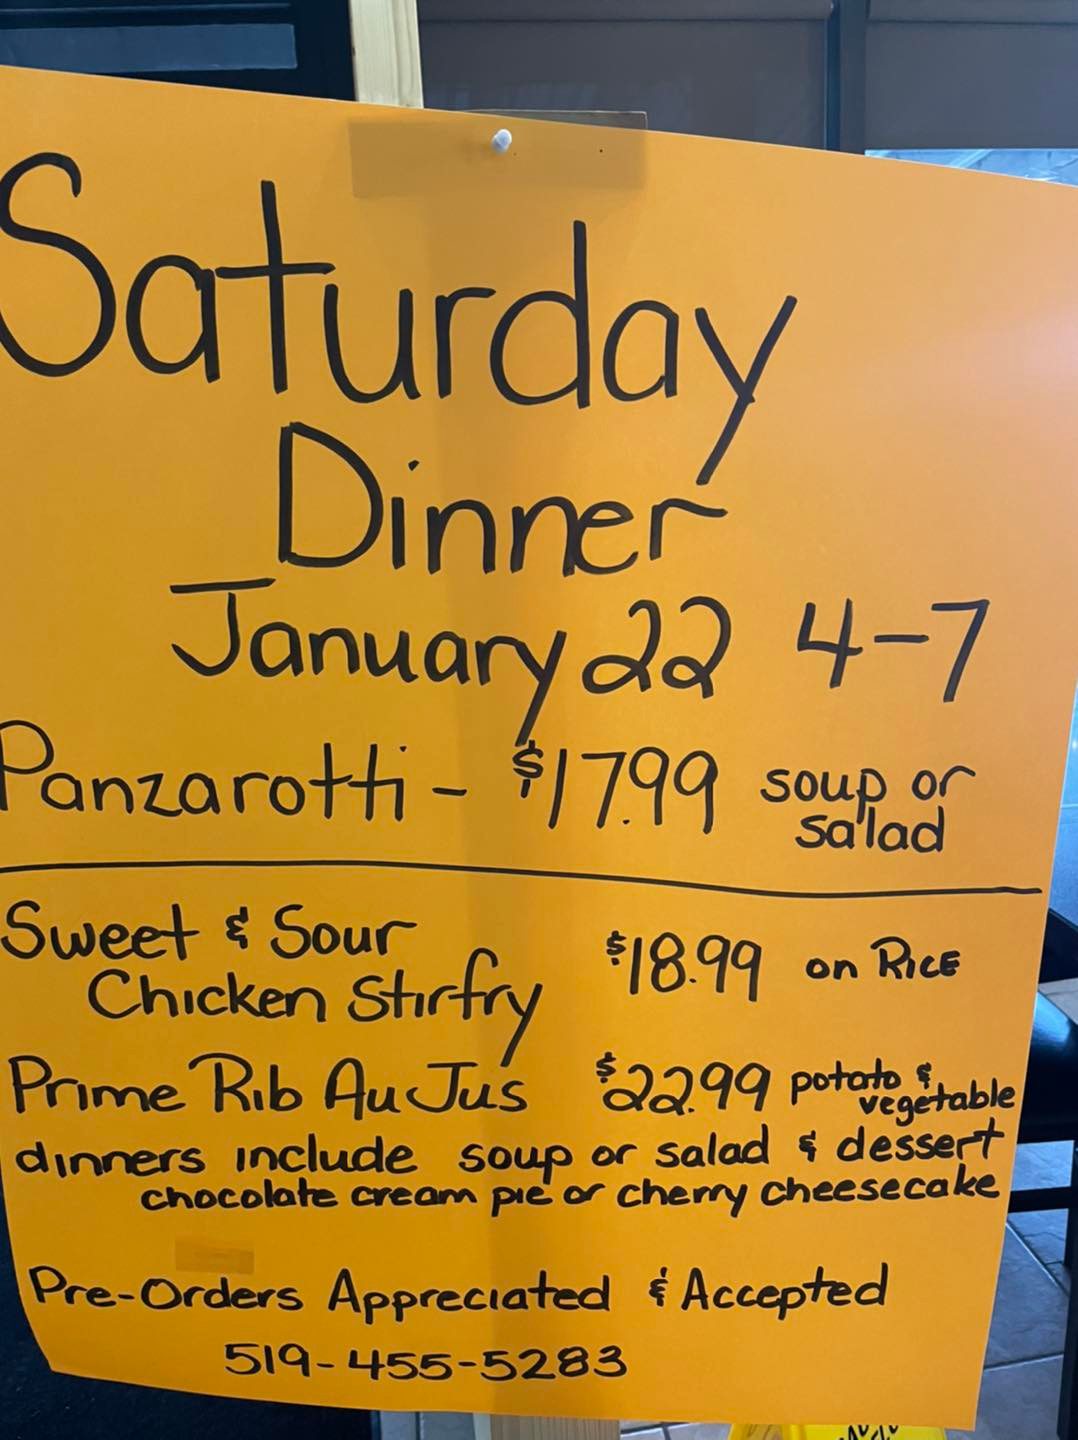 Saturday
Dinner
January 22 4-7
Panzarotti - $17.99 soup or
salad
Sweet & Sour
Chicken Stirfry $18.99 on RICE
Prime Rib Au Jus $22.99 potato &
vegetable
dinners include soup or salad & dessert
chocolate cream pie or cherry cheesecake
Pre-Orders Appreciated & Accepted
519-455-5283